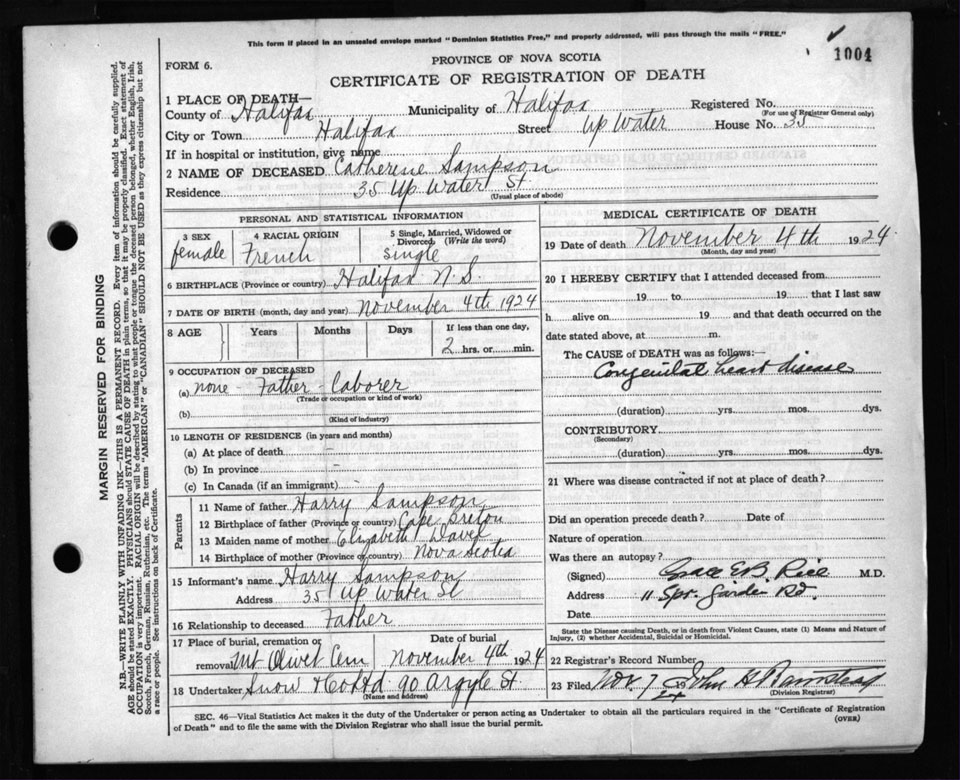 This form if placed in an unsealed envelope marked "Dominion Statistics Free," and properly addressed, will pass through the mails "FREE."
1004
FORM 6.
PROVINCE OF NOVA SCOTIA
CERTIFICATE OF REGISTRATION OF DEATH
1 PLACE OF DEATH—
County of Halifax Municipality of Halifax Registered No.
(For use of Registrar General only)
City or Town Halifax Street Up Water House No. 35
If in hospital or institution, give name
2 NAME OF DECEASED Catherine Sampson
Residence 35 Up Water St
(Usual place of abode)
PERSONAL AND STATISTICAL INFORMATION
3 SEX 4 RACIAL ORIGIN 5 Single, Married, Widowed or Divorced (Write the word)
female French Single
6 BIRTHPLACE (Province or country) Halifax N.S.
7 DATE OF BIRTH (month, day and year) November 4th 1924
8 AGE Years Months Days If less than one day,
2 hrs. or min.
9 OCCUPATION OF DECEASED
(a) none - Father - Laborer
(Trade or occupation or kind of work)
(b)
(Kind of industry)
10 LENGTH OF RESIDENCE (in years and months)
(a) At place of death
(b) In province
(c) In Canada (if an immigrant)
Parents
11 Name of father Harry Sampson
12 Birthplace of father (Province or country) Cape Breton
13 Maiden name of mother Elizabeth
14 Birthplace of mother (Province or country) Nova Scotia
15 Informant's name Harry Sampson
Address 35 Up Water St
16 Relationship to deceased Father
17 Place of burial, cremation or removal Mt Olivet Cem
Date of burial November 4th 1924
18 Undertaker Snow & Co Ltd 90 Argyle St.
(Name and address)
MEDICAL CERTIFICATE OF DEATH
19 Date of death November 4th 1924.
(Month, day and year)
20 I HEREBY CERTIFY that I attended deceased from
19 to 19 that I last saw
h alive on 19 and that death occurred on the
date stated above, at m.
The CAUSE of DEATH was as follows:—
Congenital heart disease
(duration) yrs. mos. dys.
CONTRIBUTORY
(Secondary)
(duration) yrs. mos. dys.
21 Where was disease contracted if not at place of death?
Did an operation precede death? Date of
Nature of operation
Was there an autopsy?
(Signed) Grace E.B. Rice M.D.
Address 11 Spr. Garden Rd.
Date
State the Disease causing Death, or in death from Violent Causes, state (1) Means and Nature of
Injury, (2) whether Accidental, Suicidal or Homicidal.
22 Registrar's Record Number
23 Filed Nov. 7 19 John H Barnstead
(Division Registrar)
SEC. 46—Vital Statistics Act makes it the duty of the Undertaker or person acting as Undertaker to obtain all the particulars required in the "Certificate of Registration
of Death" and to file the same with the Division Registrar who shall issue the burial permit.
(OVER)
MARGIN RESERVED FOR BINDING
N.B.—WRITE PLAINLY WITH UNFADING INK—THIS IS A PERMANENT RECORD. Every item of information should be carefully supplied.
AGE should be stated EXACTLY. PHYSICIANS should STATE CAUSE OF DEATH in plain terms, so that it may be properly classified. Exact statement of
OCCUPATION is very important. RACIAL ORIGIN will be described by stating to what people or tongue the deceased person belonged, whether English, Irish,
Scotch, French, German, Russian, Ruthenian, etc. The terms "AMERICAN" or "CANADIAN" SHOULD NOT BE USED as they express citizenship but not
a race or people. See instructions on back of Certificate.